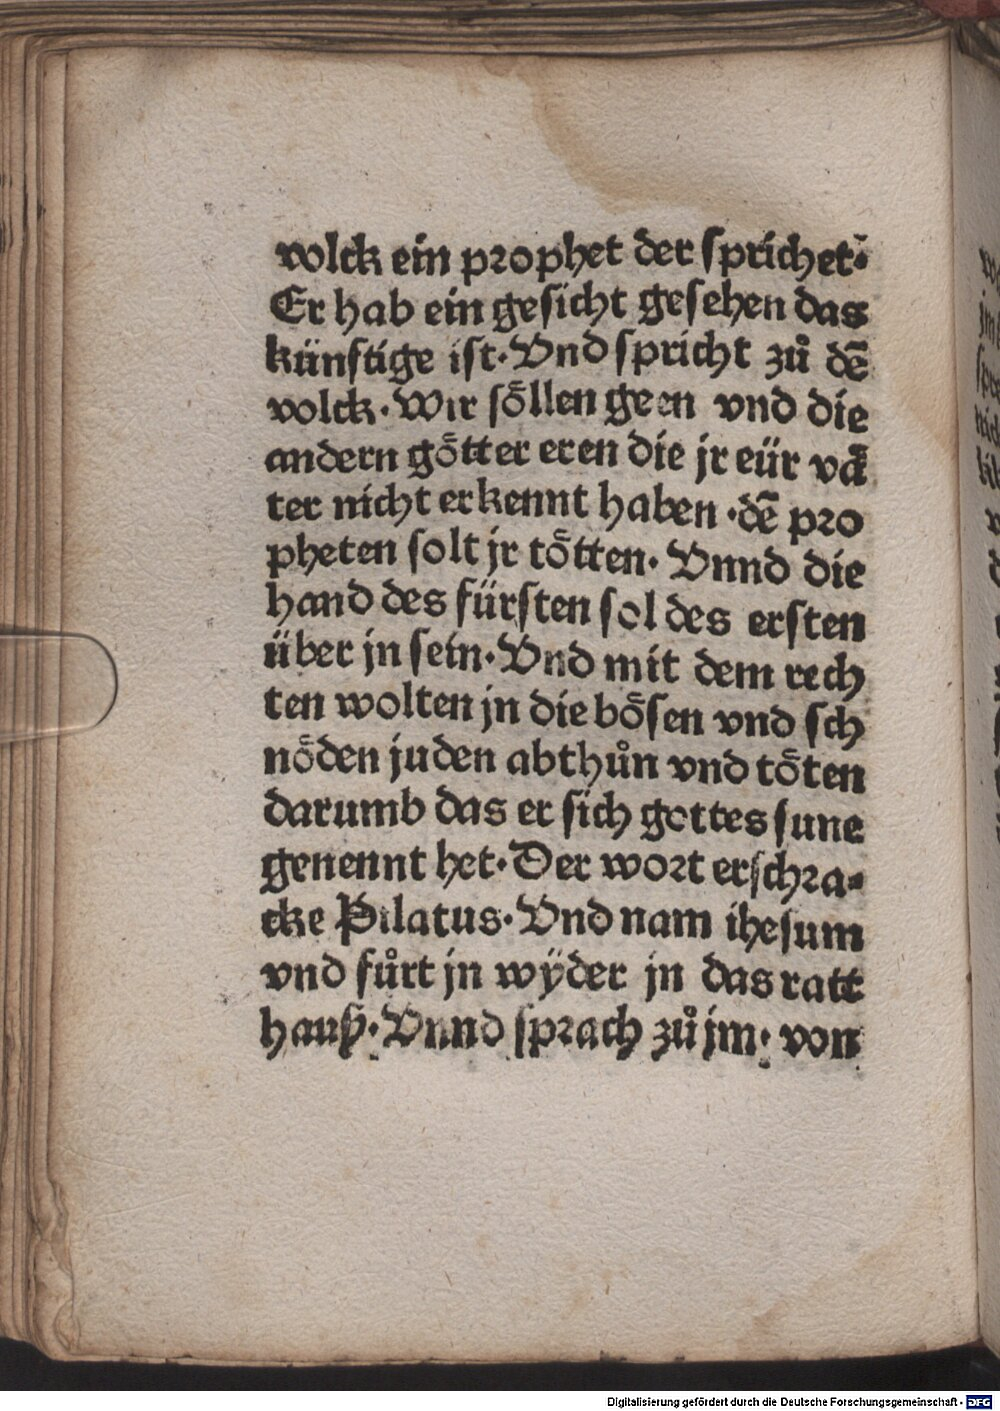 volck ein prophet der sprichet·
Er hab ein gesicht gesehen das
künftige ist· Vnd spricht zů dē
volck· Wir soͤllen geen vnd die
andern goͤtter eren die jr eür vaͤ
ter nicht erkennt haben ·dē pro
pheten solt jr toͤtten· Vnnd die
hand des fürsten sol des ersten
über jn sein· Vnd mit dem rech
ten wolten jn die boͤsen vnd sch
noͤden juden abthůn vnd toͤten
darumb das er sich gottes sune
genennt het· Der wort erschra-
cke Pilatus· Vnd nam ihesum
vnd fůrt jn wÿder jn das ratt
hauß· Vnnd sprach zů jm· von
Digitalisierung gefördert durch die Deutsche Forschungsgemeinschaft - DFG